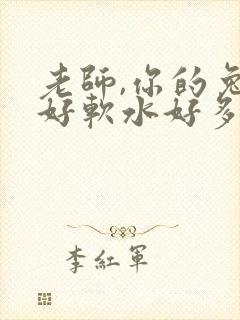 老師,你的兔
好軟水好多
李紅軍